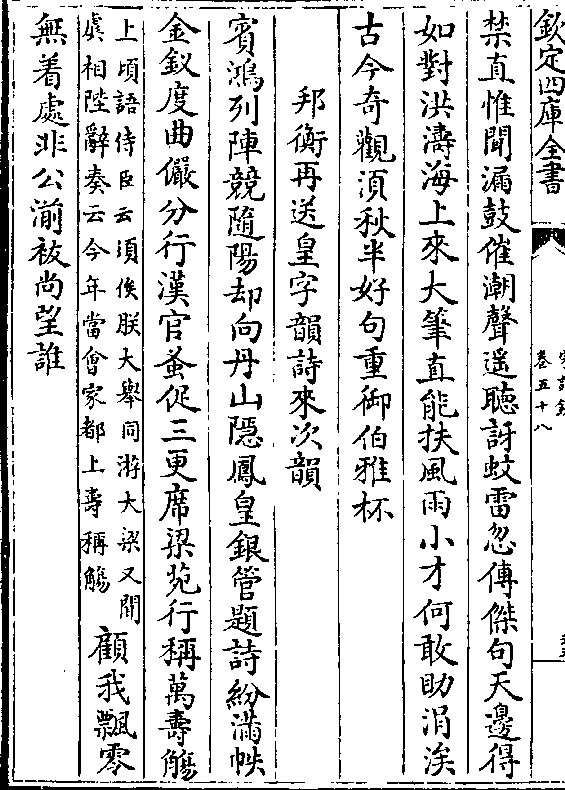 欽定四庫全書
卷五十八
禁直惟聞漏鼓催潮聲遥聽訝蚊雷忽傳傑句天邊得
如對洪濤海上來大筆直能扶風雨小才何敢助涓涘
古今奇觀須秋半好句重御伯雅杯
邦衡再送皇字韻詩來次韻
賓鴻列陣競隨陽却向丹山隠鳳皇銀管題詩紛滿帙
金釵度曲儼分行漢官蚤促三更席梁苑行稱萬壽觴
上頃語侍臣云須俟朕大舉同游大梁又聞
虞相陛辭奏云今年當會家都上壽稱觴
顧我飄零
無着處非公湔祓尚望誰